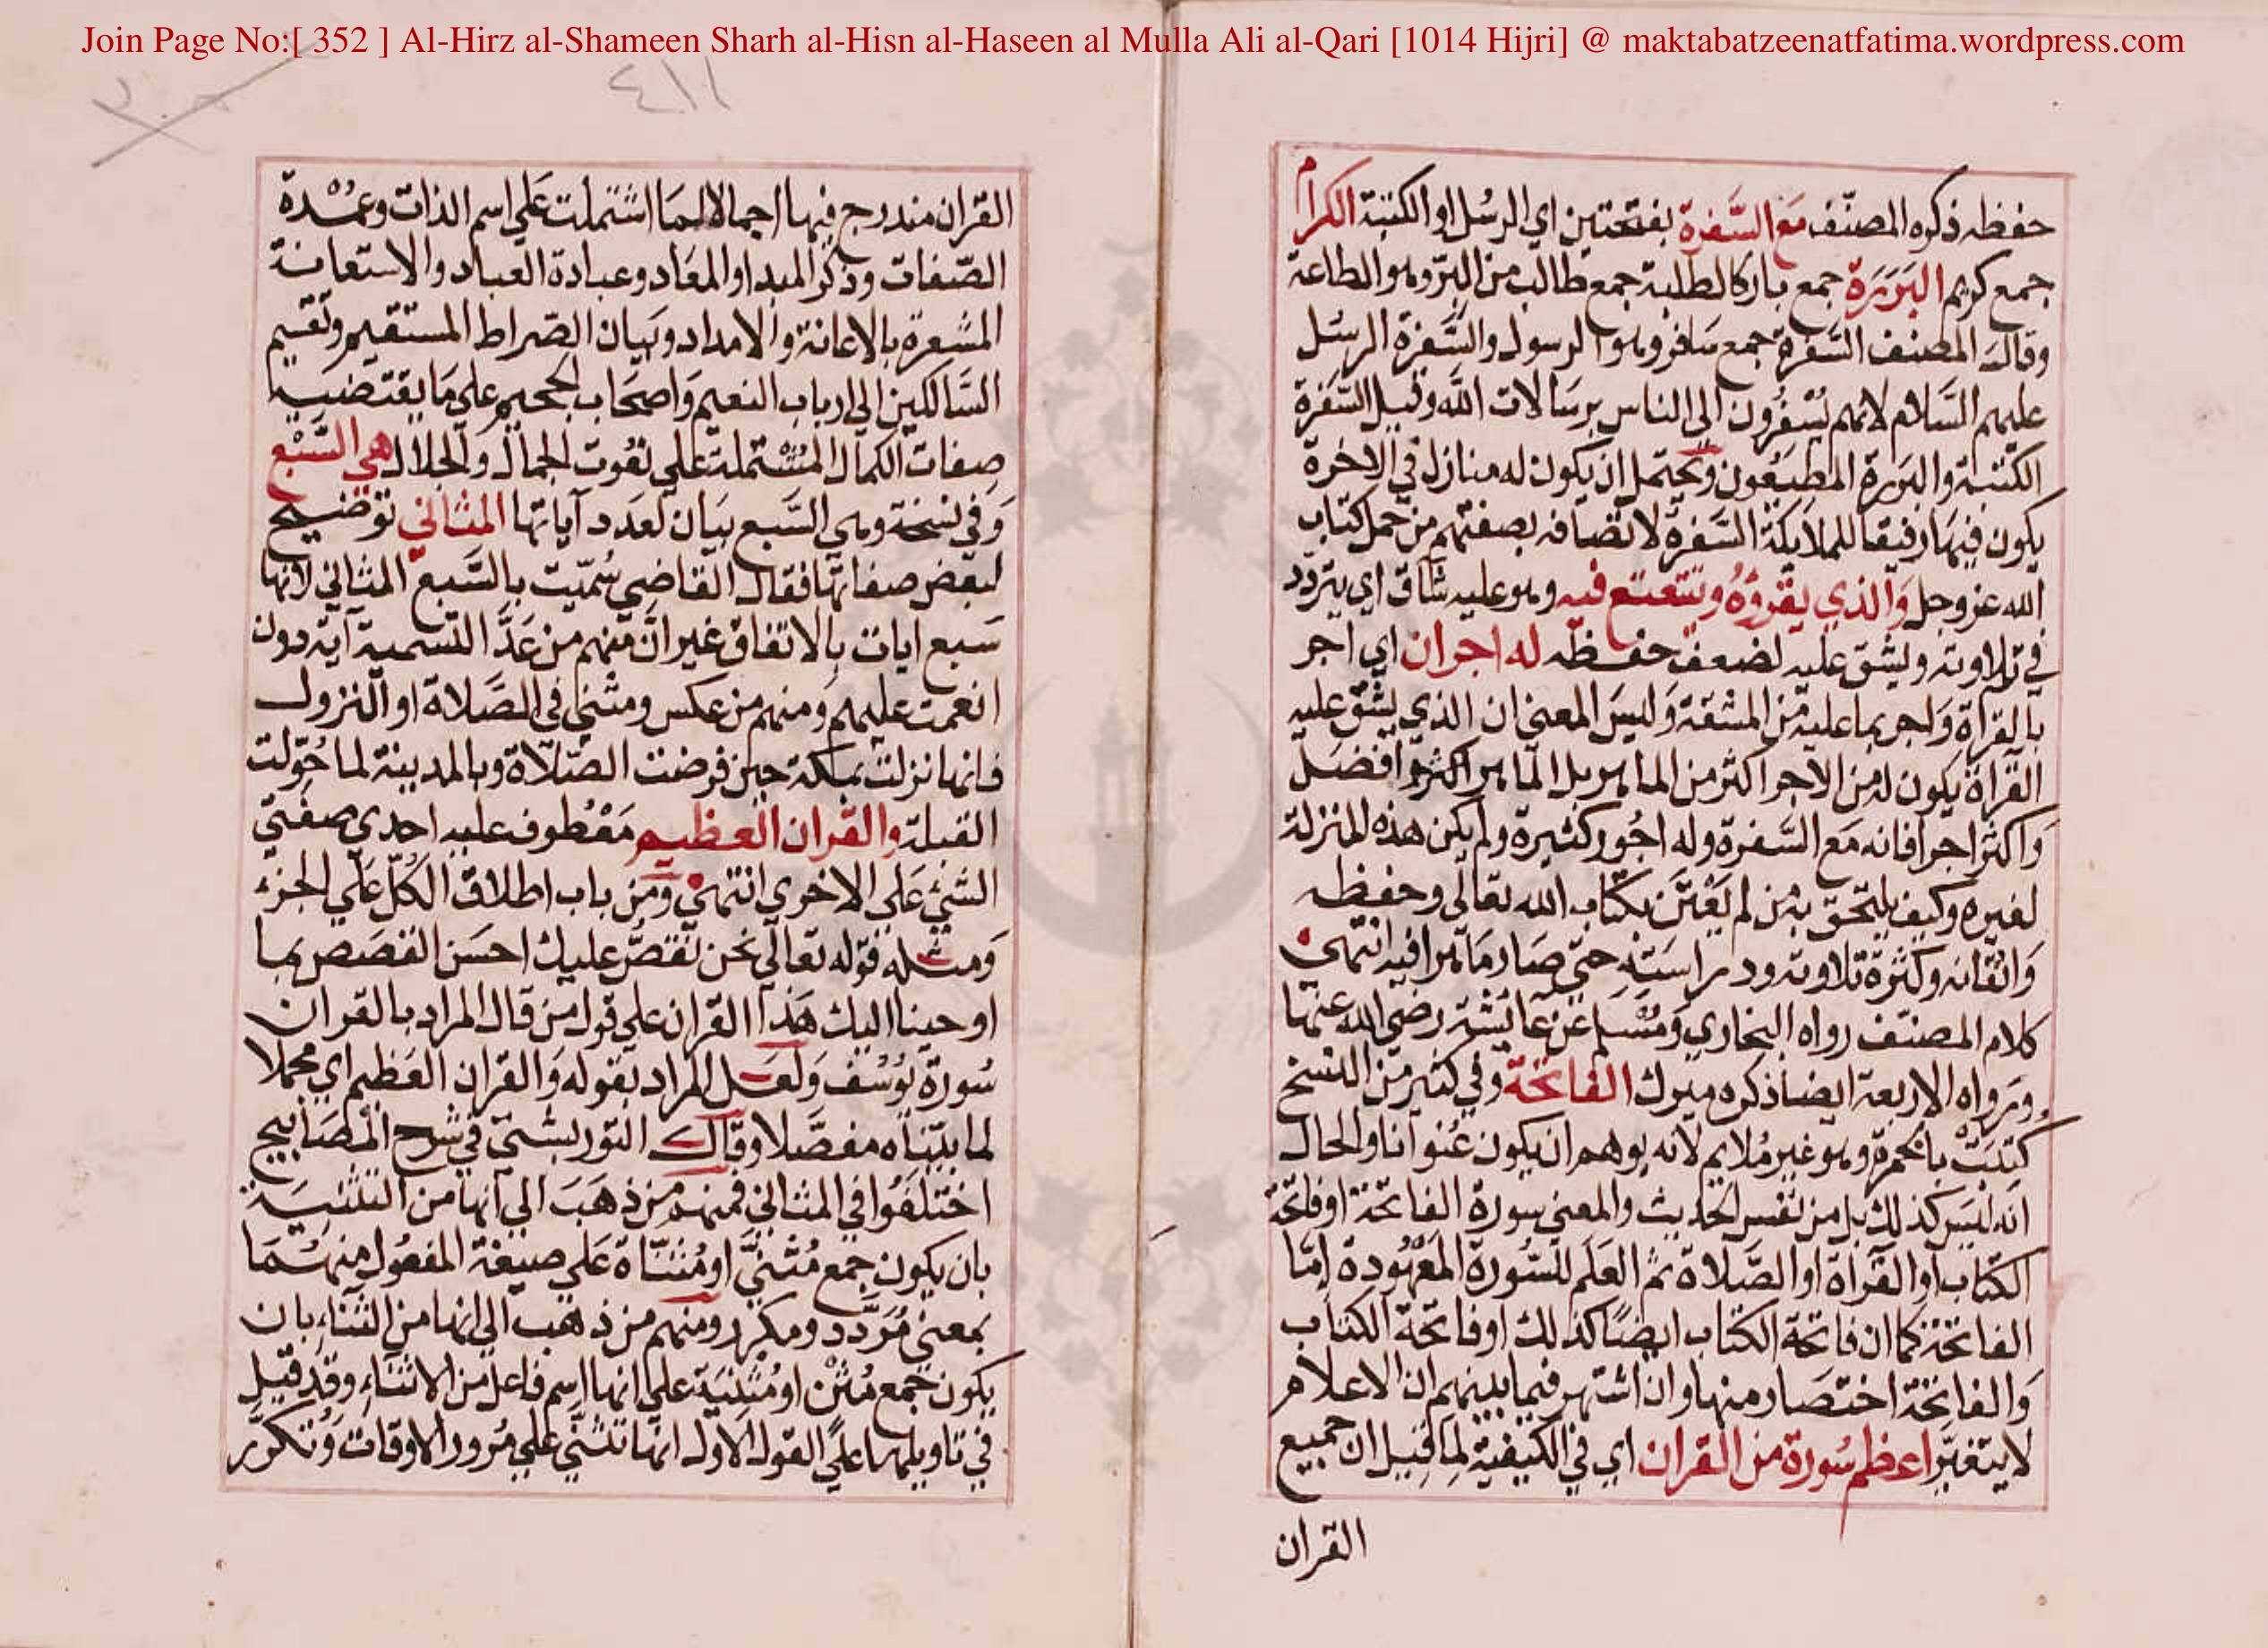 Join Page No:[ 352 ] Al-Hirz al-Shameen Sharh al-Hisn al-Haseen al Mulla Ali al-Qari [1014 Hijri] @ maktabatzeenatfatima.wordpress.com
٤١١
حفظه ذكره المصنّف مَع السَّفرة بفتحتين اي الرسُل او الكتبة الكرام
جمع كريم البَرَرَة جمع بار كالطلبة جمع طالب من البرّ وهو الطاعة
وقال المصنف السَّفرة جمع سَافر وهو الرسول والسَّفرة الرسُل
عليهم السَّلام لانهم يُسْفُرون الى الناس برسَالات الله وقيل السَّفرة
الكتبة والبَررة المطيعُون ويحتمل ان يكون له منازل في الاخرة
يكون فيهَا رفيقا للملايكة السَّفرة لاتصافه بصفتهم من حمل كتاب
الله عز وجل وَالذي يقرؤهُ ويتتعتع فيه وهو عليه شاق اي يتردد
في تلاوته ويشق عليه لضعف حفظه له اجران اي اجر
بالقراة وَاجر بما عليه من المشقة وَليسَ المعنى ان الذي يشق عليه
القراة يكون له من الاجر اكثر من الماهر بل الماهر اكثر وافضل
وَاكثر اجرا فانه مَع السَّفرة وله اجُور كثيرة ولم يكن هذه المنزلة
لغيره وكيف يلتحق به من لم يَعْتَن بكتاب الله تعالى وحفظه
وَاتقانه وكثرة تلاوته ودراسَته حتى صَار مَاهرا فيه انتهى
كلام المصنّف رواه البخاري وَمُسْلم عن عائشة رضي الله عنها
ورواه الاربعة ايضا ذكره ميرك الفاتحة وفي كثير من النسخ
كتبَتْ بالحمرة وهو غير مُلايم لانه يوهم ان يكون عُنوانا والحال
انه ليسَ كذلك بل من نفس الحديث والمعنى سورة الفاتحة او فاتحة
الكتاب او القراة او الصَّلاة ثم العَلَم للسُّورة المعْهُودة امّا
الفاتحة كما ان فاتحة الكتاب ايضًا كذلك او فاتحة الكتاب
وَالفاتحة اختصار منها وان اشتهر فيما بينهم ان الاعلام
لا يتغيّر اعظم سُورة من القران اي في الكيفية لما قيل ان جميع
القران
القران مندرج فيها اجمالا لمَا اشتملت عَلى اسم الذات وعمُدة
الصّفات وذكر المبدا والمعَاد وعبادة العباد والاستعانة
المشعرة بالاعانة والامداد وبَيان الصّراط المستقيم وتقسيم
السَّالكين الى ارباب النعيم وَاصحَاب الجحيم على مَا يقتضيه
صفات الكمال المشْتملة على نعُوت الجمال والجلال هي السَّبْع
وَفي نسخة وهي السَّبع بيَان لعَدد آياتها المثاني توضيح
لبعض صفاتها فقال القاضي سُمّيت بالسَّبع المثاني لانها
سَبع ايات بالاتفاق غير انّ منهم من عَدَّ التسمية آية دون
انعمت عليهم وَمنهم من عكس ومثنى في الصَّلاة او النزول
فانها نزلت بمكة حين فرضت الصَّلاة وبالمدينة لما حُوّلت
القبلة والقران العظيم مَعْطوف عليه احدى صفتي
الشئ عَلى الاخرى انتهى ومن باب اطلاق الكُلّ عَلى الجزء
وَمثله قوله تعالى نحن نقصُّ عليك احسَن القصَص بما
اوحينا اليك هَذا القران على قول من قال المراد بالقران
سُورة يُوسُف وَلعَل المراد بقوله وَالقران العَظيم اي مجملا
لما بيّنّاه مفصَّلا وقال التوربشتي في شرح المصَابيح
اختلفُوا في المثاني فمنهم من ذهَبَ الى انها من التثنيَة
بان يكون جمع مُثنيَّ او مُثنّاة عَلى صيغة المفعُول منهمَا
بمعنى مُردّد ومكرر ومنهم من ذهب الى انها من الثنآء بان
يكون جمع مُثْن او مُثْنيَة على انها اسم فاعل من الاثناء وقد قيل
في تاويلها على القول الاول انها تثنّى على مُرور الاوقات وَتتكرّر